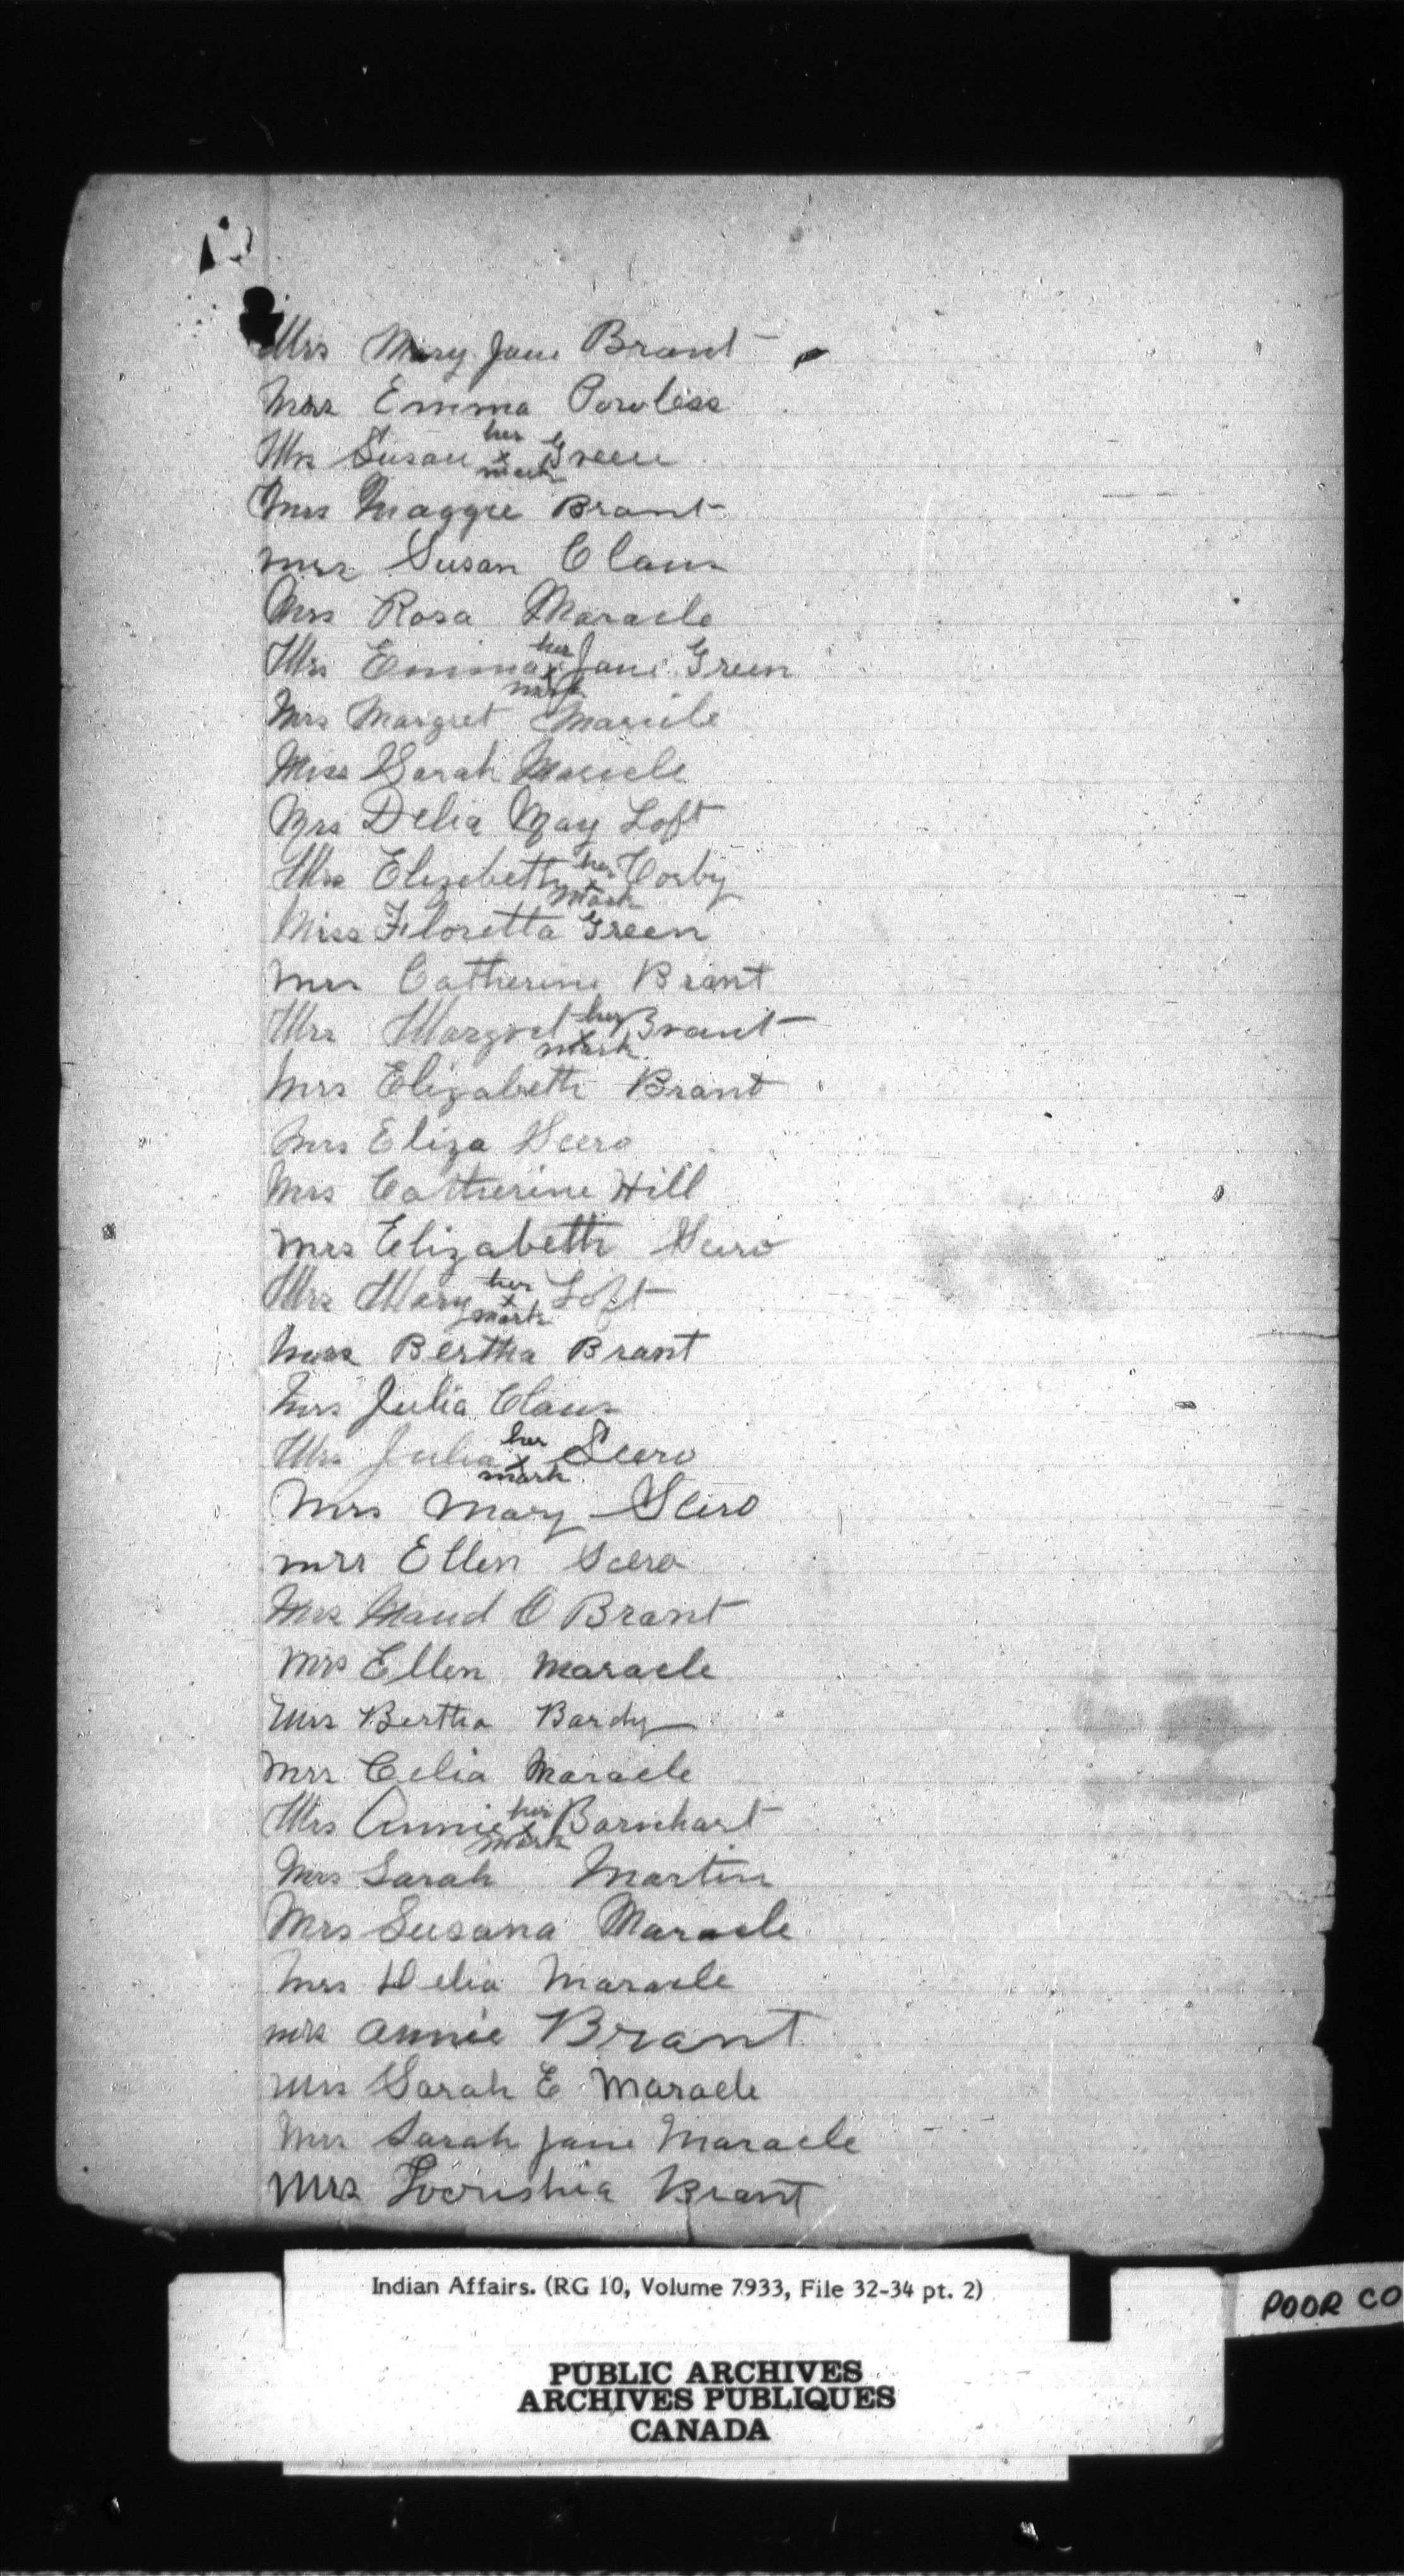 Mrs Mary Jane Brant
Mrs Emma Powless
Mrs Susan her x mark Green
Mrs Maggie Brant
Mrs Susan Claus
Mrs Rosa Maracle
Mrs Emma her x mark Jane Green
Mrs Margret Maricle
Miss Sarah Maricle
Mrs Delia May Loft
Mrs Elizebeth her x mark Corby
Miss Floretta Green
Mrs Catherine Brant
Mrs Margret her x mark Brant
Mrs Elizabeth Brant
Mrs Eliza Scero
Mrs Catherine Hill
Mrs Elizabeth Scero
Mrs Mary her x mark Loft
Miss Bertha Brant
Mrs Julia Claus
Mrs Julia her x mark Scero
Mrs Mary Scero
Mrs Ellen Scero
Mrs Maud O Brant
Mrs Ellen Maracle
Mrs Bertha Bardy
Mrs Celia Maracle
Mrs Annie her x mark Barnhart
Mrs Sarah Martin
Mrs Susana Maracle
Mrs Delia Maracle
Mrs Annie Brant
Mrs Sarah E Maracle
Mrs Sarah Jane Maracle
Mrs Brant
Indian Affairs. (RG 10, Volume 7933, File 32-34 pt. 2)
POOR CO
PUBLIC ARCHIVES
ARCHIVES PUBLIQUES
CANADA